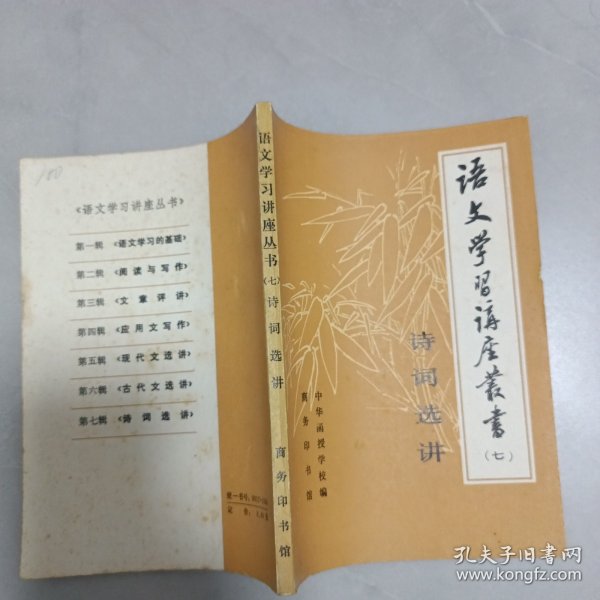 100
《语文学习讲座丛书》
第一辑 《语文学习的基础》
第二辑 《阅读与写作》
第三辑 《文章评讲》
第四辑 《应用文写作》
第五辑 《现代文选讲》
第六辑 《古代文选讲》
第七辑 《诗词选讲》
统一书号：
定价：
语文学习讲座丛书（七）诗词选讲 商务印书馆
语文学習講座叢書
（七）
诗词选讲
中华函授学校编
商务印书馆
孔夫子旧书网
www.kongfz.com